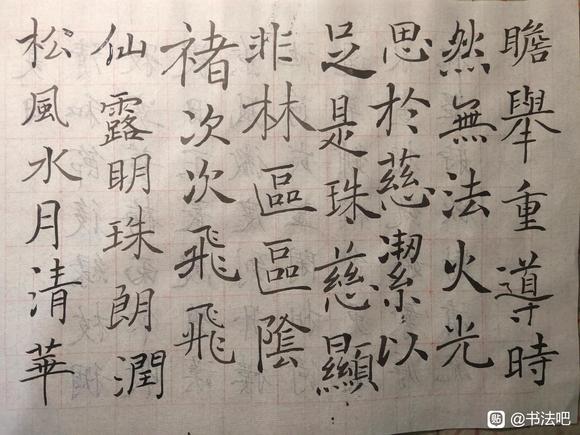 瞻舉重導時
然無法火光
思於慈潔以
足是珠慈顯
非林區區陰
褚次次飛飛
仙露明珠朗潤
松風水月清華
貼 @书法吧